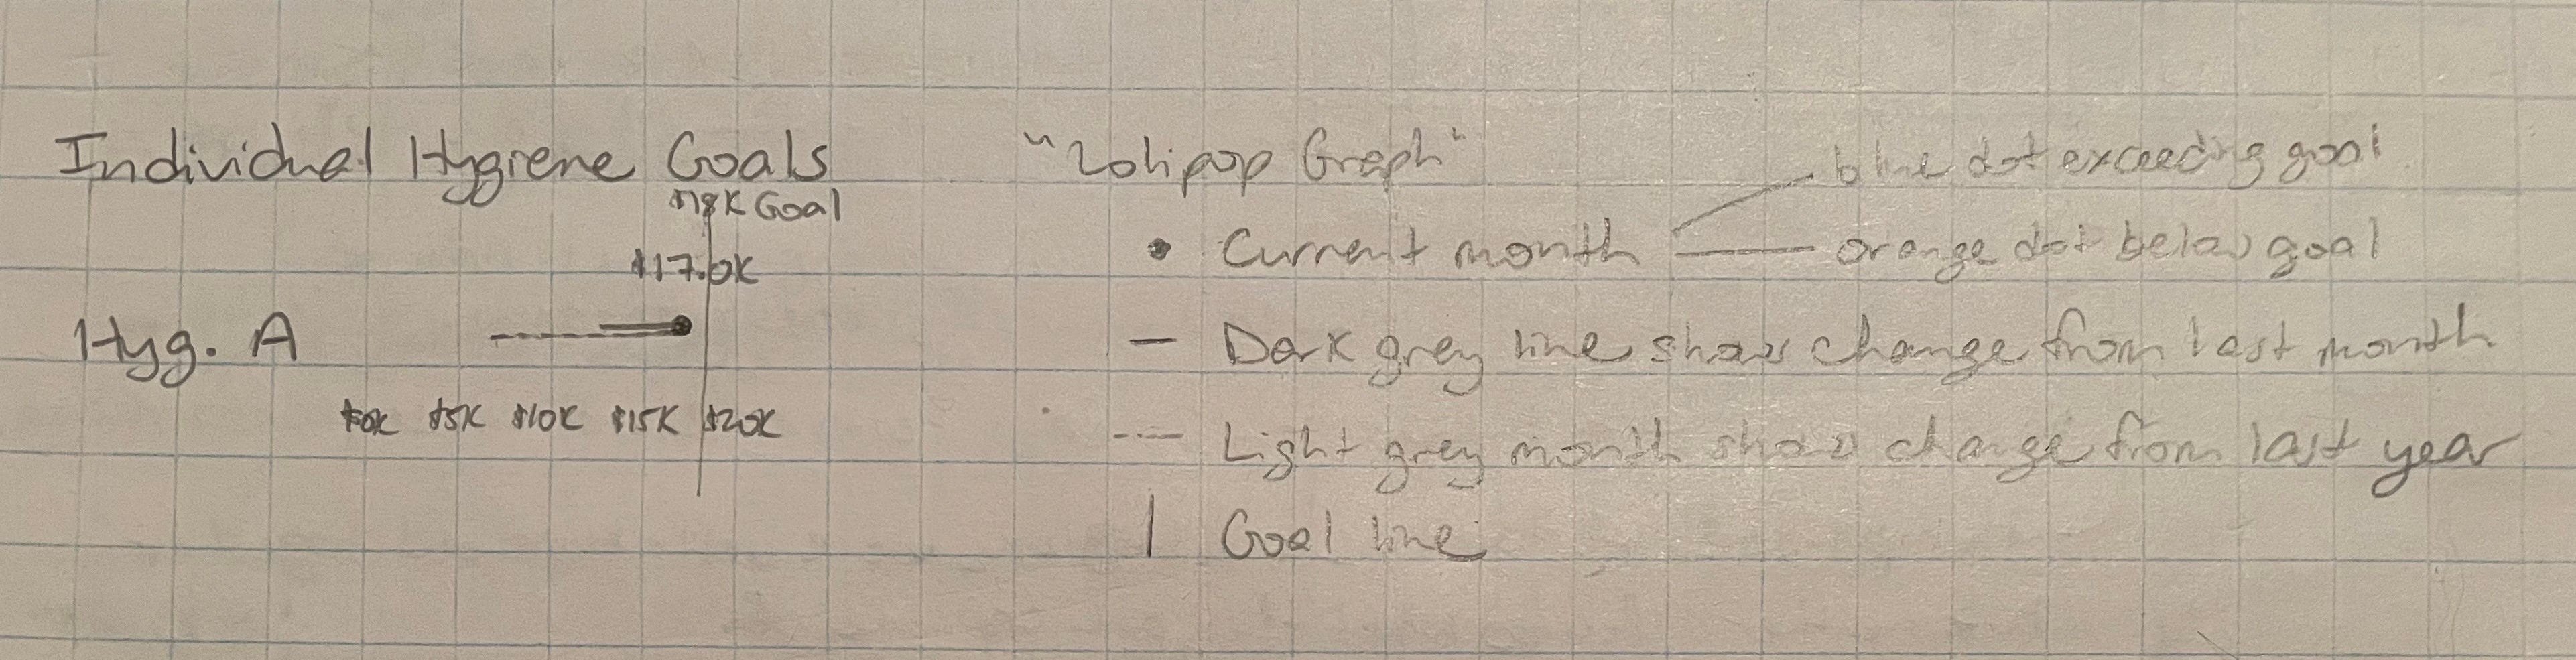 Individual Hygiene Goals
$18K Goal
$17.0K
Hyg. A
$0K $5K $10K $15K $20K
"Lolipop Graph"
blue dot exceeding goal
• Current month
orange dot below goal
— Dark grey line shows change from last month
--- Light grey month shows change from last year
| Goal line